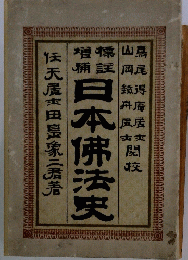 鳥尾得庵居士
山岡鐵舟居士
閲校
標註
增補
日本佛法史
任天居士田島象二君著